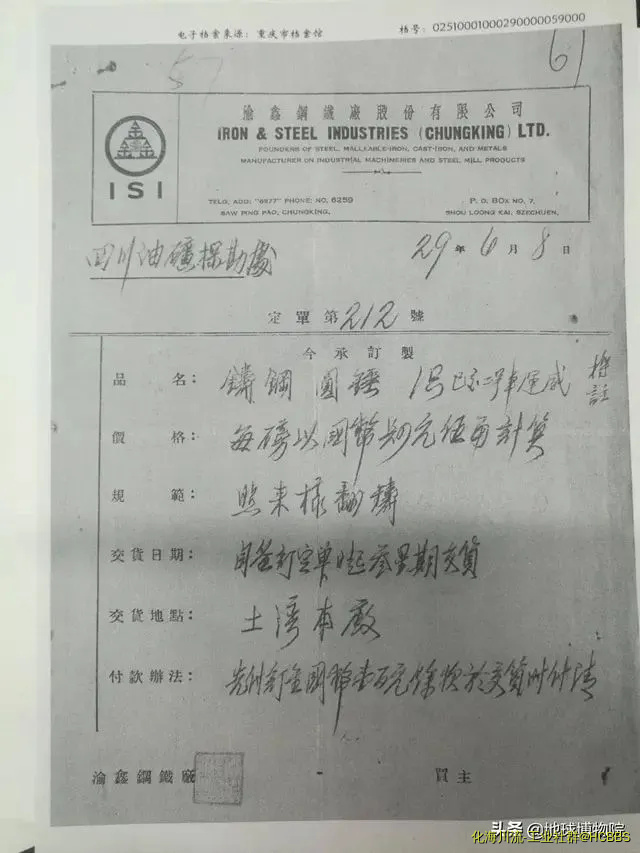 电子档案来源：重庆市档案馆 档号：02510001000290000059000
57 61
渝鑫鋼鐵廠股份有限公司
IRON & STEEL INDUSTRIES (CHUNGKING) LTD.
FOUNDERS OF STEEL, MALLEABLE-IRON, CAST-IRON, AND METALS
MANUFACTURER ON INDUSTRIAL MACHINERIES AND STEEL MILL PRODUCTS
ISI
TELG. ADD: "6977" PHONE: NO. 6259
SAW PING PAO, CHUNGKING.
P. O. BOX NO. 7,
SHOU LOONG KAI, SZECHUEN,
四川油礦探勘處
29年6月8日
定單第212號
今承訂製
品名：鑄鋼圓錘
價格：每磅以國幣 元 計算
規範：照來樣翻鑄
交貨日期：自簽訂定單日起叁星期交貨
交貨地點：土灣本廠
付款辦法：先付訂金國幣壹百元餘款於交貨時付清
渝鑫鋼鐵廠 買主
头条 @地球博物院
化海川流-工业社群@HCBBS